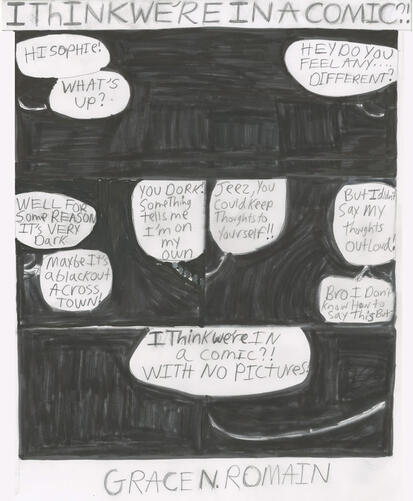 I THINK WE'RE IN A COMIC?!
HI SOPHIE!
WHAT'S
UP?
HEY DO YOU
FEEL ANY....
DIFFERENT?
WELL FOR
Some REASON
IT'S VERY
Dark
maybe It's
a blackout
Across
TOWN!
YOU DORK!
Something
tells me
I'm on
my
own
Jeez, You
Could keep
Thoughts to
Yourself!!
But I didn't
Say My
thoughts
outloud!
Bro I Don't
know How to
say This But
I Think we're IN
a comic?!
WITH NO PICTURES!
GRACE N. ROMAIN